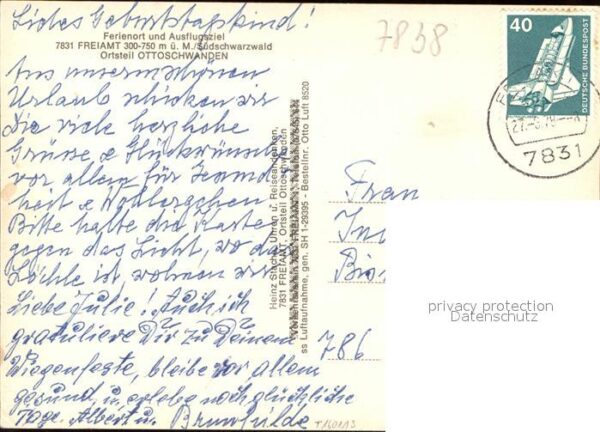 Liebes Geburtstagskind!
Ferienort und Ausflugsziel
7831 FREIAMT 300-750 m ü. M./Südschwarzwald
Ortsteil OTTOSCHWANDEN
Aus unserm schönen
Urlaub schicken wir
Dir viele herzliche
Grüsse & Glückwünsche
vor allem für Gesund
heit & Wohlergehen
Bitte halte die Karte
gegen das Licht, wo das
Löchle ist, wohnen wir
Liebe Julie! Auch ich
gratuliere Dir zu Deinem
Wiegenfeste, bleibe vor allem
gesund, u. erlebe noch glückliche
Tage. Albert u. Brunhilde
Heinz Stecher, Uhren u. Reiseandenken,
7831 FREIAMT- Ortsteil Ottoschwanden
ss Luftaufnahme, gen. SH 1-29395 - Bestellnr. Otto Luft 8520
7838
40
DEUTSCHE BUNDESPOST
7831
Frau
786
privacy protection
Datenschutz